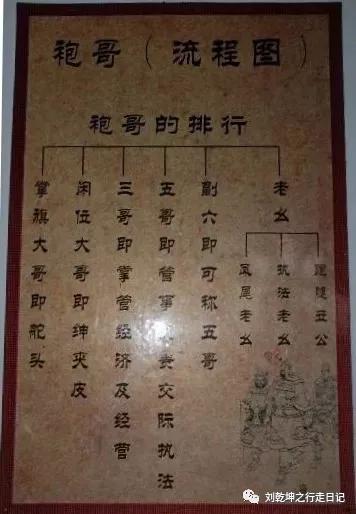 袍哥（流程图）
袍哥的排行
掌旗大哥即舵头
闲位大哥即绅夹皮
三哥即掌管经济及经营
五哥即管事责交际执法
副六即可称五哥
老幺
凤尾老幺
执法老幺
丑公
刘乾坤之行走日记